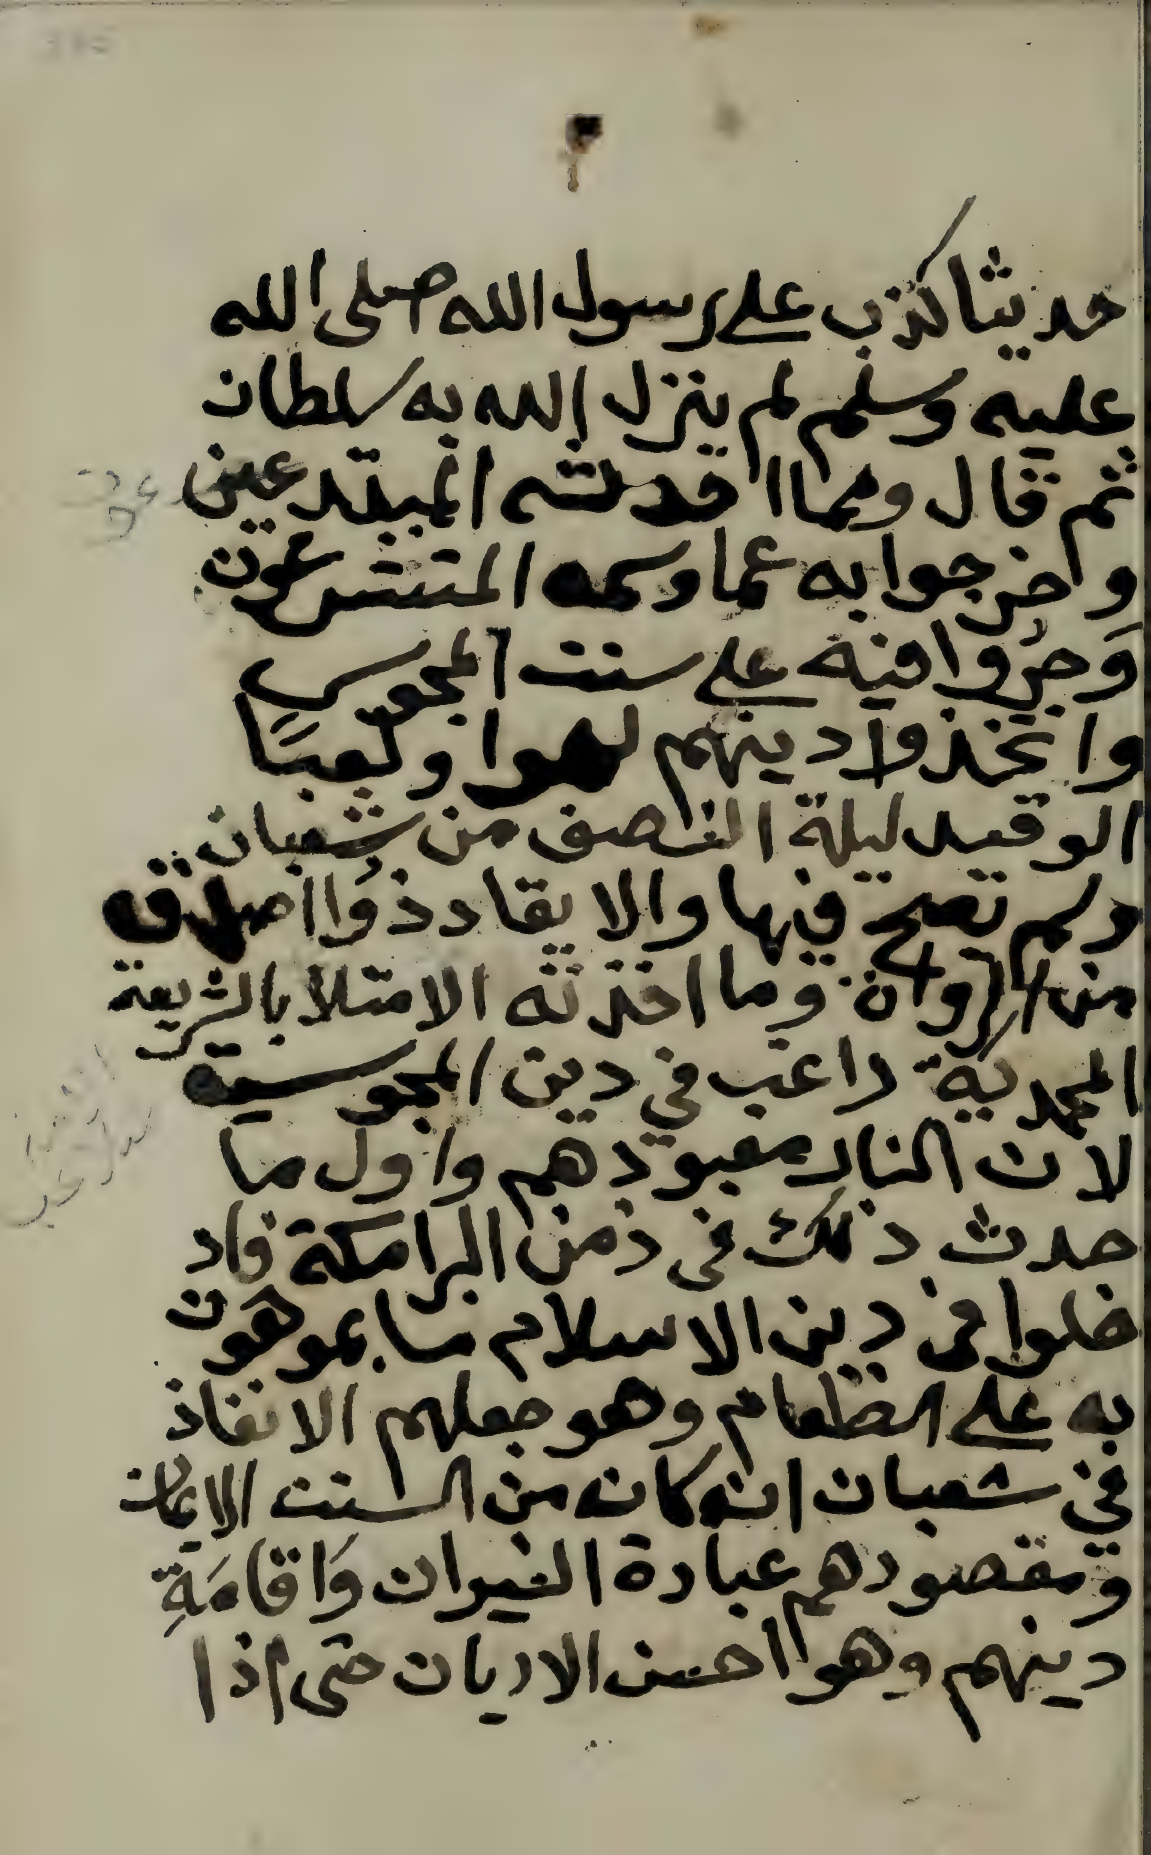 حديثا كذب على رسول الله صلى الله
عليه وسلم لم ينزل الله به سلطان
ثم قال ومما احدثته المبتدعين
واخرجوا به عما وسمه المتشرعون
وجروا فيه على سنت المجوس
واتخذوا دينهم لهوا ولعبا
الوقيد ليلة النصف من شعبان
ولم تصح فيها والا يقاد ذوا
من وما اخذته الامتلا بالشريعة
المحمدية راغب في دين المجوسية
لان النار معبودهم واول ما
حدث ذلك في زمن البرامكة فاد
خلوا في دين الاسلام ما يموهون
به على الطعام وهو جعلهم الانقاذ
في شعبان انه كان من السنت الايمان
ومقصودهم عبادة النيران واقامة
دينهم وهو احسن الاديان حتى اذا